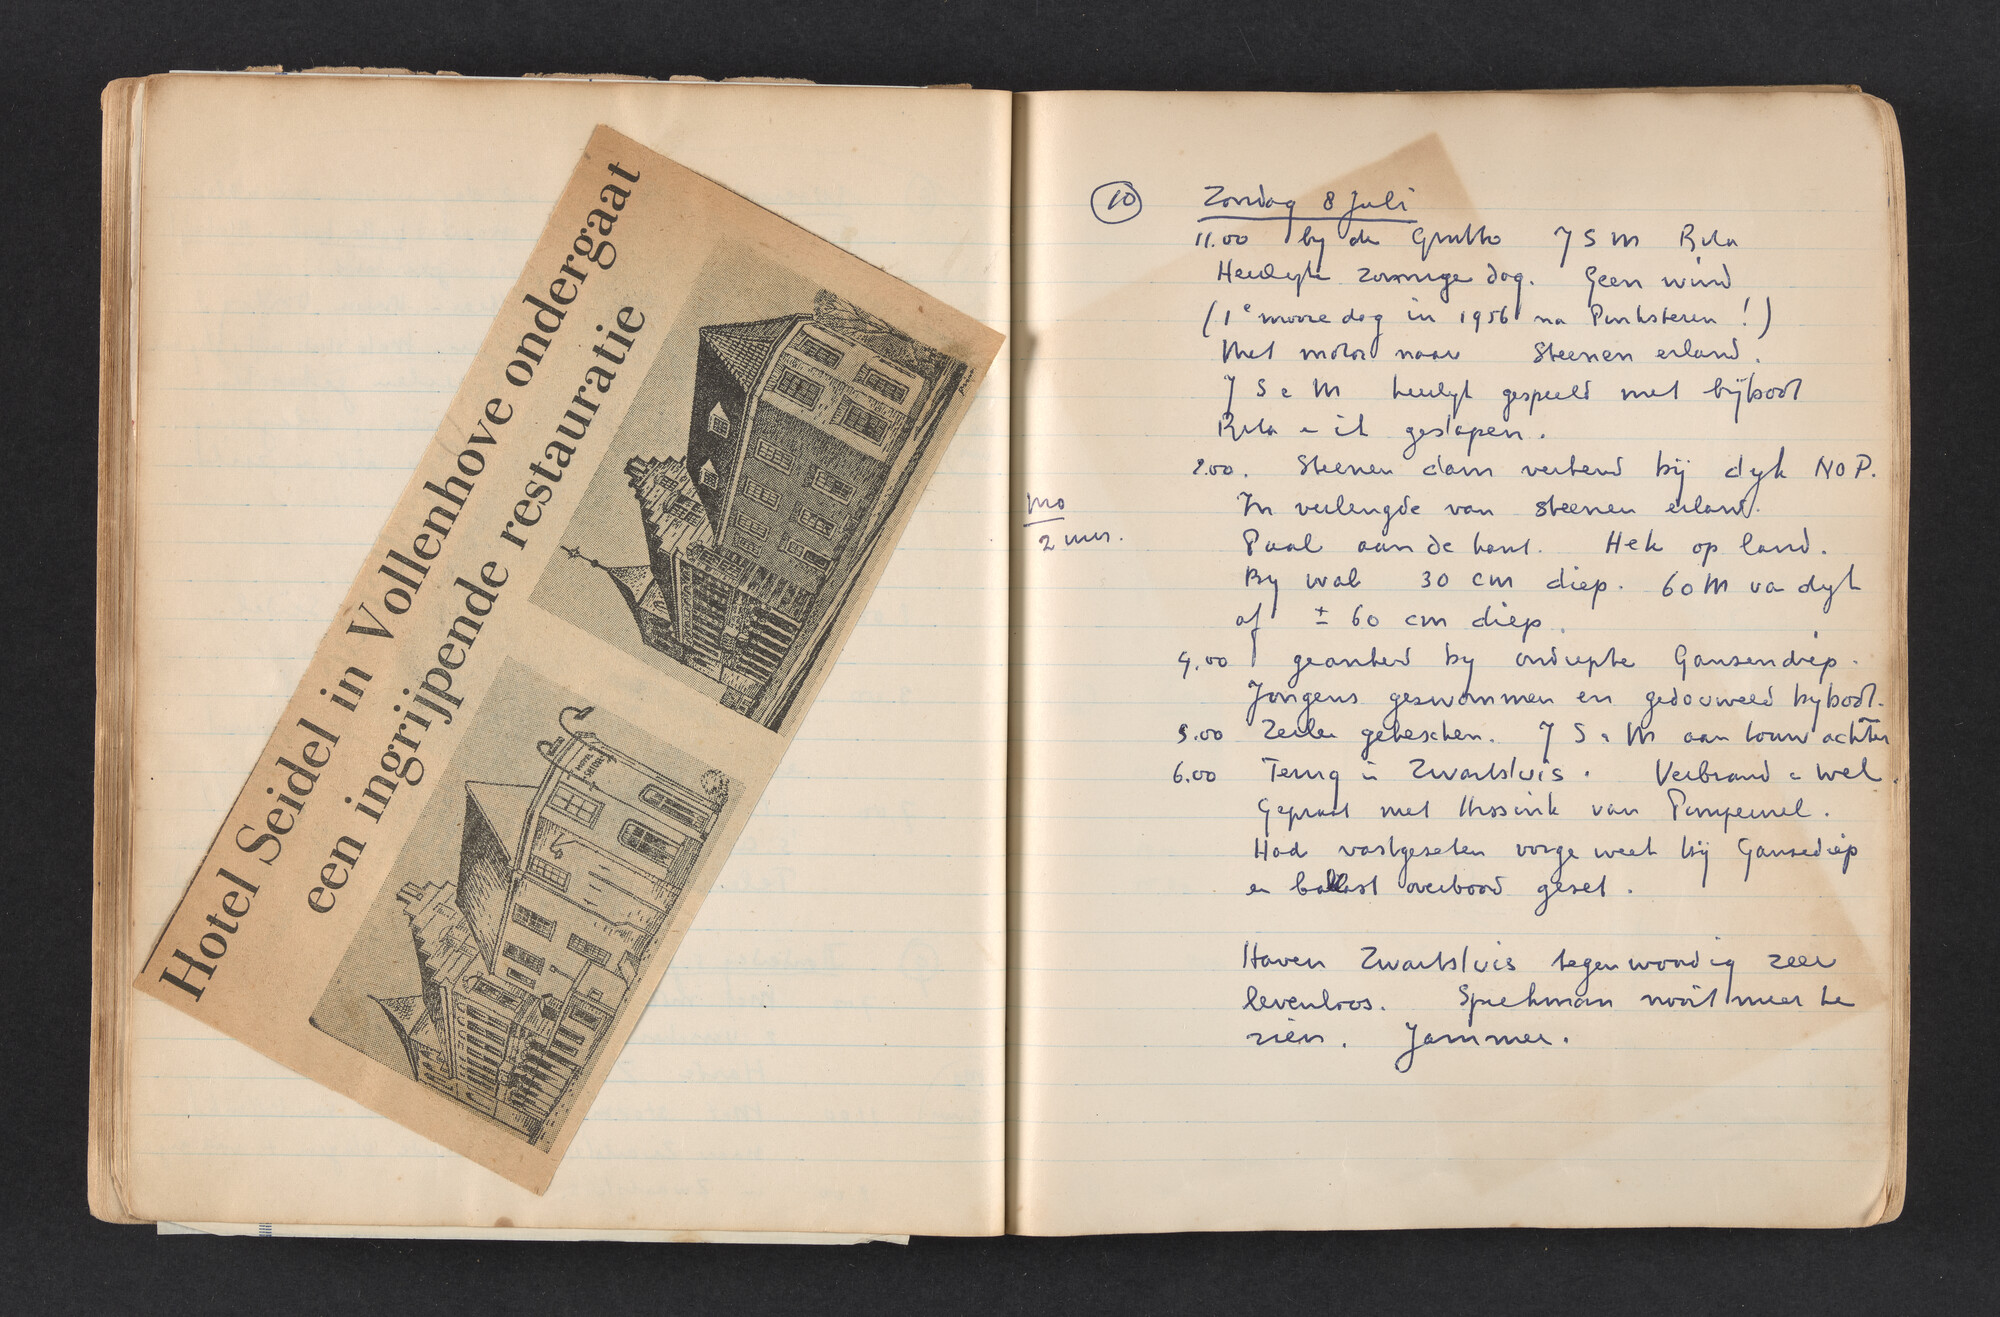 Hotel Seidel in Vollenhove ondergaat
een ingrijpende restauratie
HOTEL SEIDEL
10
Zondag 8 Juli
11.00 by de Grutto J S M Rita
Heerlyke zonnige dag. Geen wind
(1e mooie dag in 1956 na Pinksteren!)
Met motor naar Steenen eiland.
J S e M heerlyk gespeeld met bijboot
Rita e ik geslapen.
2.00. Steenen dam verkend bij dyk NOP.
In verlengde van steenen eiland.
Paal aan de kant. Hek op land.
By wal 30 cm diep. 60 M va dyk
af ± 60 cm diep.
mo
2 uur.
4.00 geankerd by ondiepte Ganzendiep.
Jongens geswommen en gedouweed byboot.
5.00 Zeilen geheschen. J S e M aan touw achter
6.00 Terug in Zwartsluis. Verbrand e wel.
Gepraat met van Pimpernel.
Had vastgezeten vorge week bij Ganzediep
en ballast overbood gezet.
Haven Zwartsluis tegenwoordig zeer
levenloos. Spiekman nooit meer te
zien. Jammer.